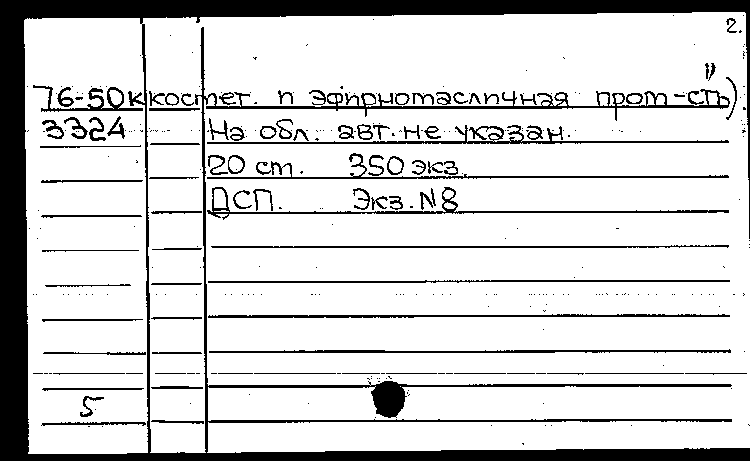 2.
76-50к космет. и эфирномасличная пром-сть").
3324 На обл. авт. не указан.
20 ст. 350 экз.
ДСП. Экз. N8
5